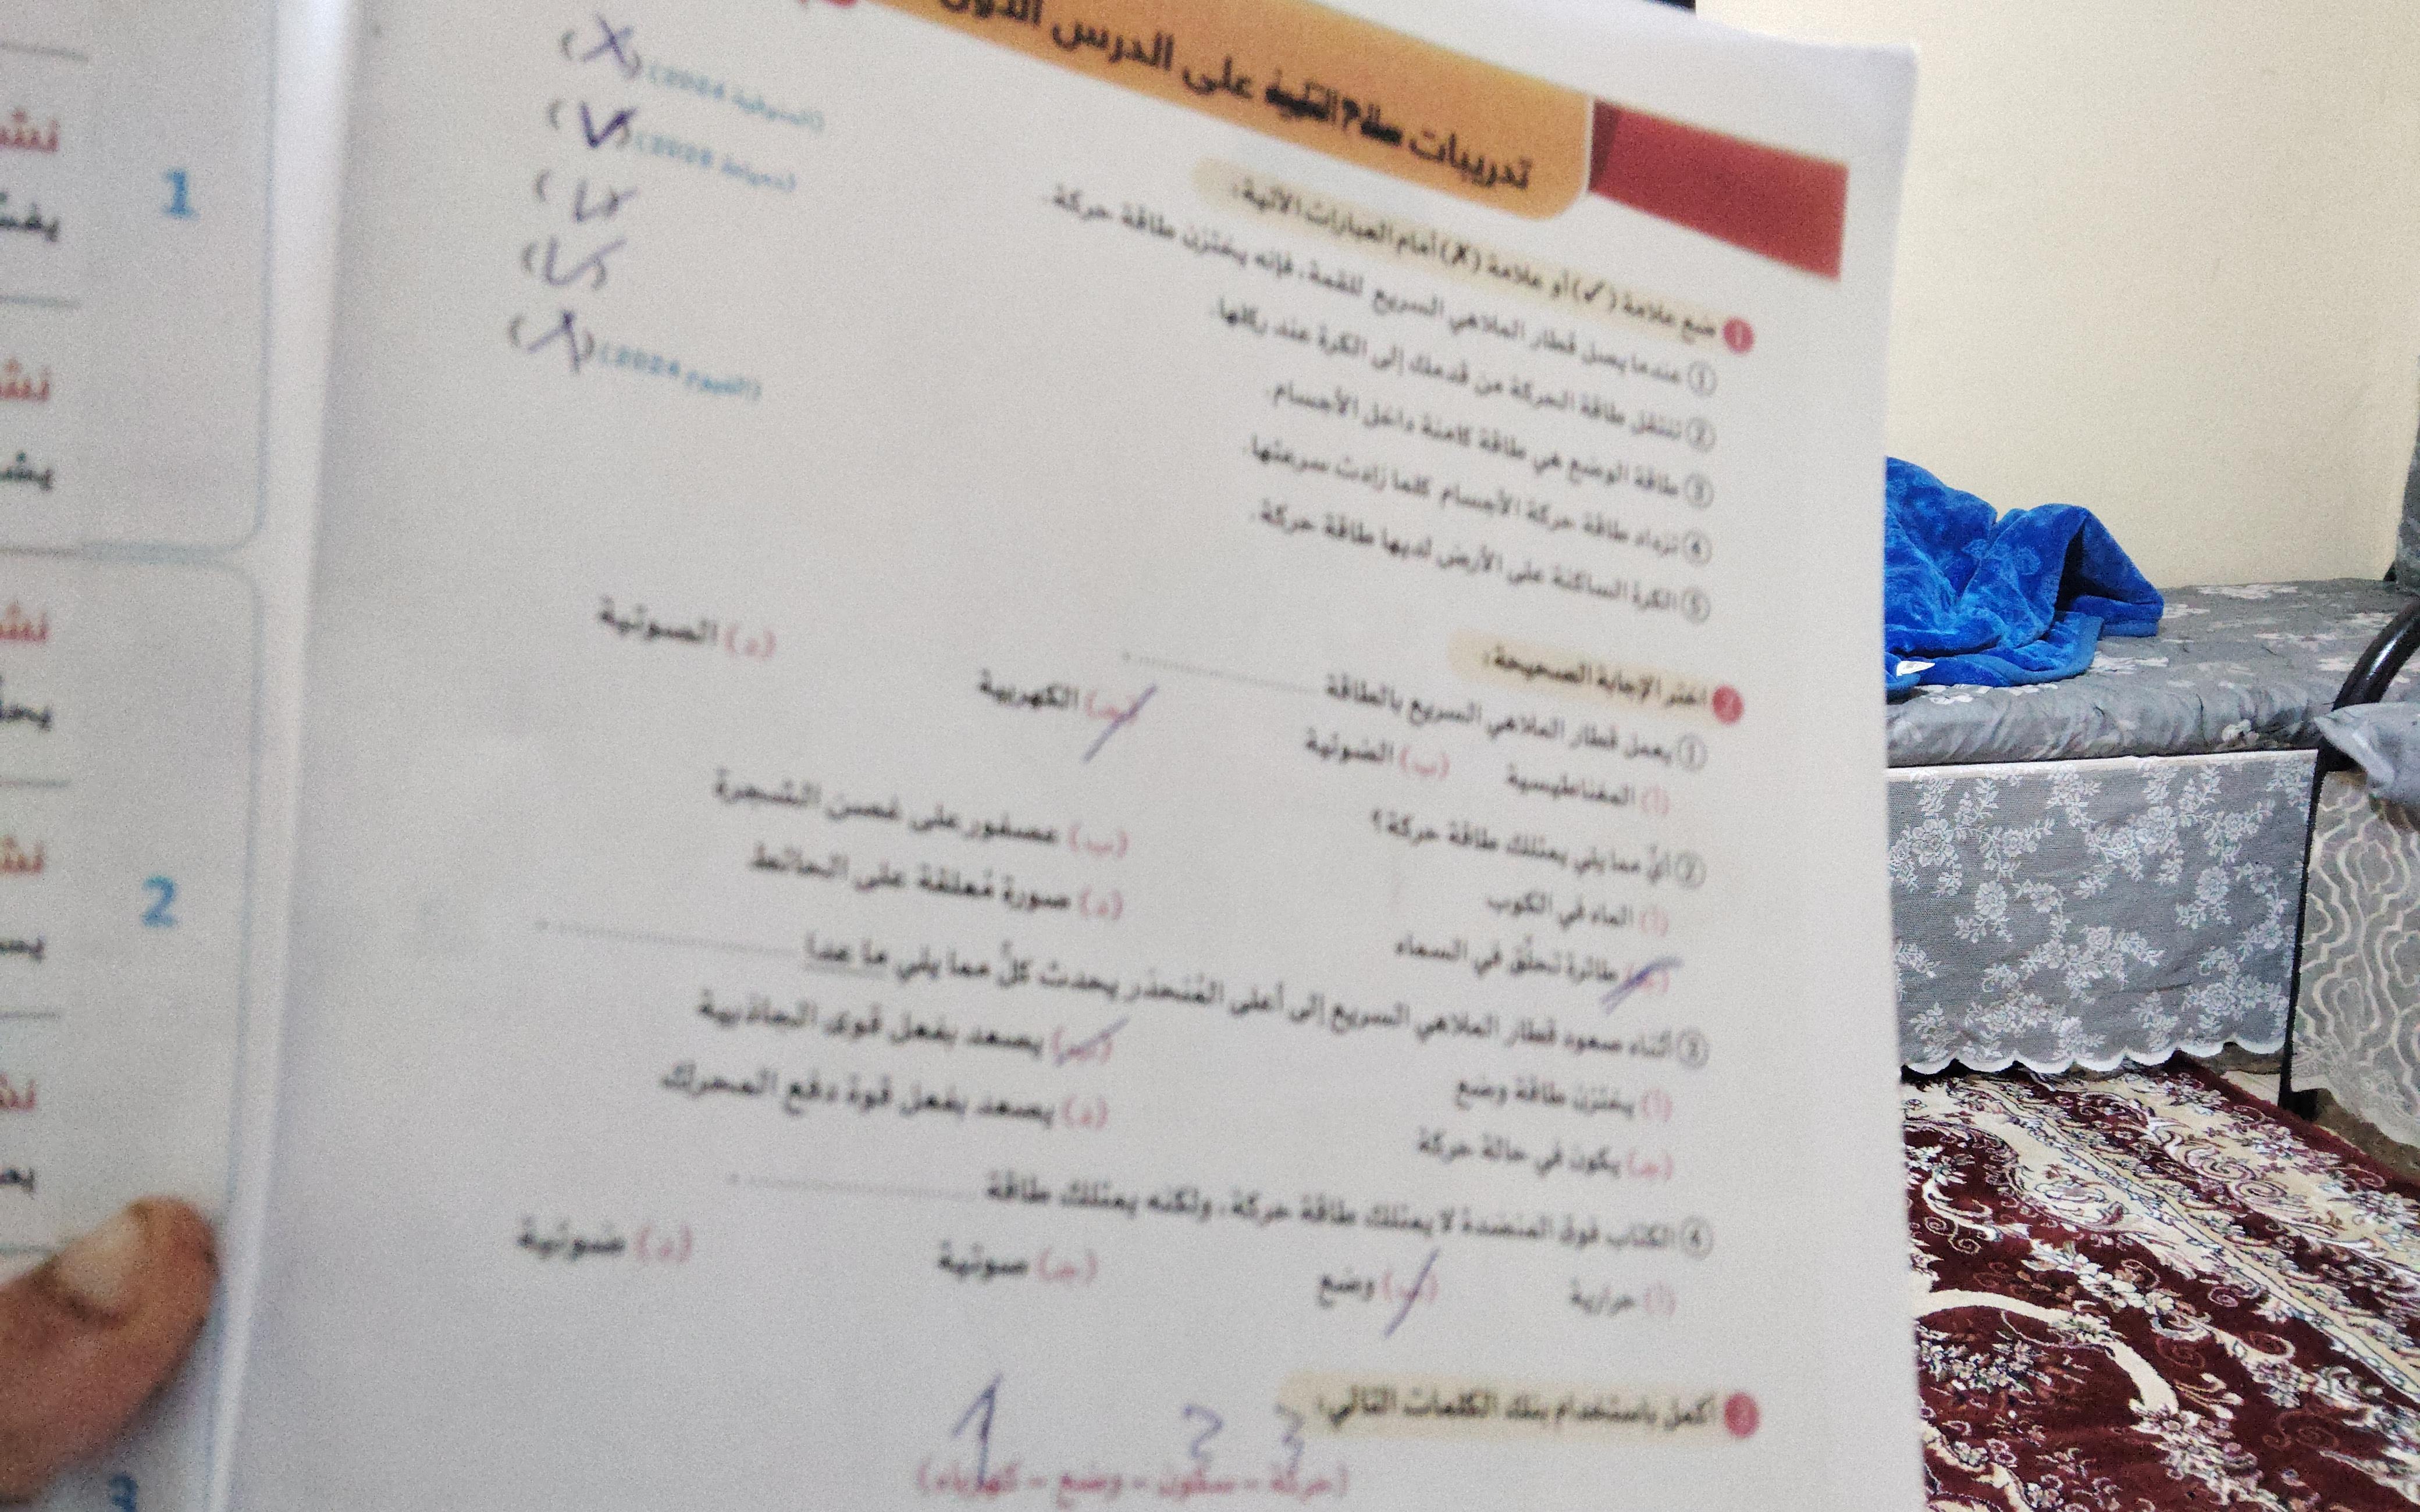 تدريبات سلاح التلميذ على الدرس الأول
1 ضع علامة (✓) أو علامة (✗) أمام العبارات الآتية:
① عندما يصل قطار الملاهي السريع للقمة، فإنه يختزن طاقة حركة. (X) (الشرقية 2024)
② تنتقل طاقة الحركة من قدمك إلى الكرة عند ركلها. (✓) (دمياط 2025)
③ طاقة الوضع هي طاقة كامنة داخل الأجسام. (✓)
④ تزداد طاقة حركة الأجسام كلما زادت سرعتها. (✓)
⑤ الكرة الساكنة على الأرض لديها طاقة حركة. (X) (الفيوم 2024)
2 اختر الإجابة الصحيحة:
① يعمل قطار الملاهي السريع بالطاقة ..........
(أ) المغناطيسية (ب) الضوئية (جـ) الكهربية (د) الصوتية
② أيٌّ مما يلي يمتلك طاقة حركة؟
(أ) الماء في الكوب (ب) عصفور على غصن الشجرة
(جـ) طائرة تحلّق في السماء (د) صورة مُعلقة على الحائط
③ أثناء صعود قطار الملاهي السريع إلى أعلى المُنحدر يحدث كلٌّ مما يلي ما عدا ..........
(أ) يختزن طاقة وضع (ب) يصعد بفعل قوى الجاذبية
(جـ) يكون في حالة حركة (د) يصعد بفعل قوة دفع المحرك
④ الكتاب فوق المنضدة لا يمتلك طاقة حركة، ولكنه يمتلك طاقة ..........
(أ) حرارية (ب) وضع (جـ) صوتية (د) ضوئية
3 أكمل باستخدام بنك الكلمات التالي:
3 2 1
(حركة – سكون – وضع – كهرباء)
1
2
3